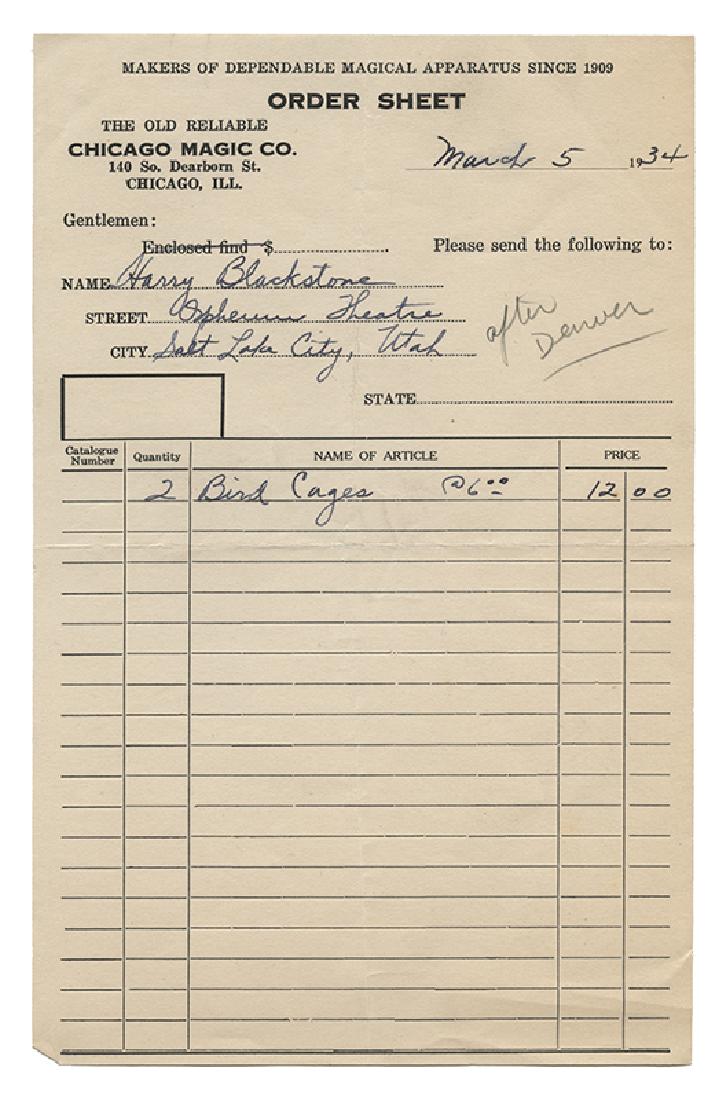 MAKERS OF DEPENDABLE MAGICAL APPARATUS SINCE 1909
ORDER SHEET
THE OLD RELIABLE
CHICAGO MAGIC CO.
140 So. Dearborn St.
CHICAGO, ILL.
March 5 1934
Gentlemen:
Enclosed find $ Please send the following to:
NAME Harry Blackstone
STREET Orpheum Theatre
CITY Salt Lake City, Utah
after Denver
STATE
Catalogue Number Quantity NAME OF ARTICLE PRICE
2 Bird Cages @6.00 12 00